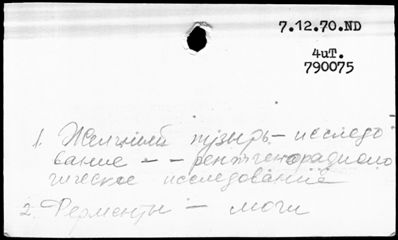 7.12.70.ND
4иТ.
790075
1. Желчный пузырь – исследо
вание – – рентгенорадиоло
гическое исследование
2. Ферменты – мочи